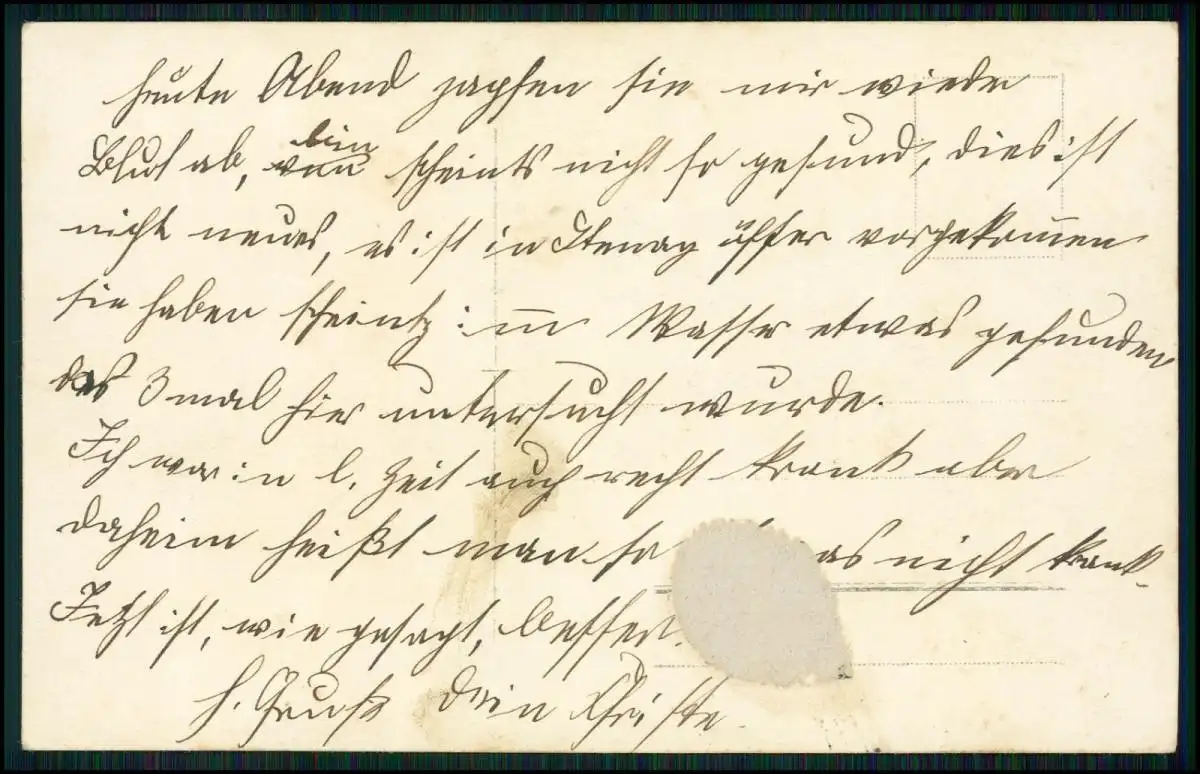 Heute Abend zapfen sie mir wieder
Blut ab, bin scheints nicht so gesund, dies ist
nicht neues, es ist in Stenay öffter vorgekom̅en
sie haben scheints im̅ Wasser etwas gefunden
das 3 mal hier untersucht wurde.
Ich war in l. Zeit auch recht krank aber
daheim heißt man so as nicht krank
Jetzt ist, wie gesagt, besser.
h. Gruß Dein Christe